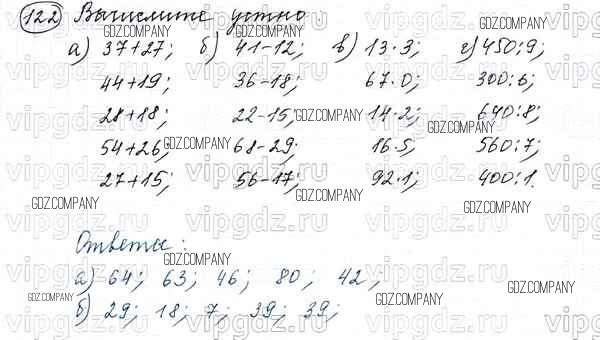 122 Вычислите устно
а) 37+27; б) 41-12; в) 13·3; г) 450:9;
44+19; 36-18; 67·0; 300:6;
28+18; 22-15; 14·2; 640:8;
54+26; 68-29; 16·5; 560:7;
27+15; 56-17; 92·1; 400:1.
Ответы:
а) 64; 63; 46; 80; 42;
б) 29; 18; 7; 39; 39;